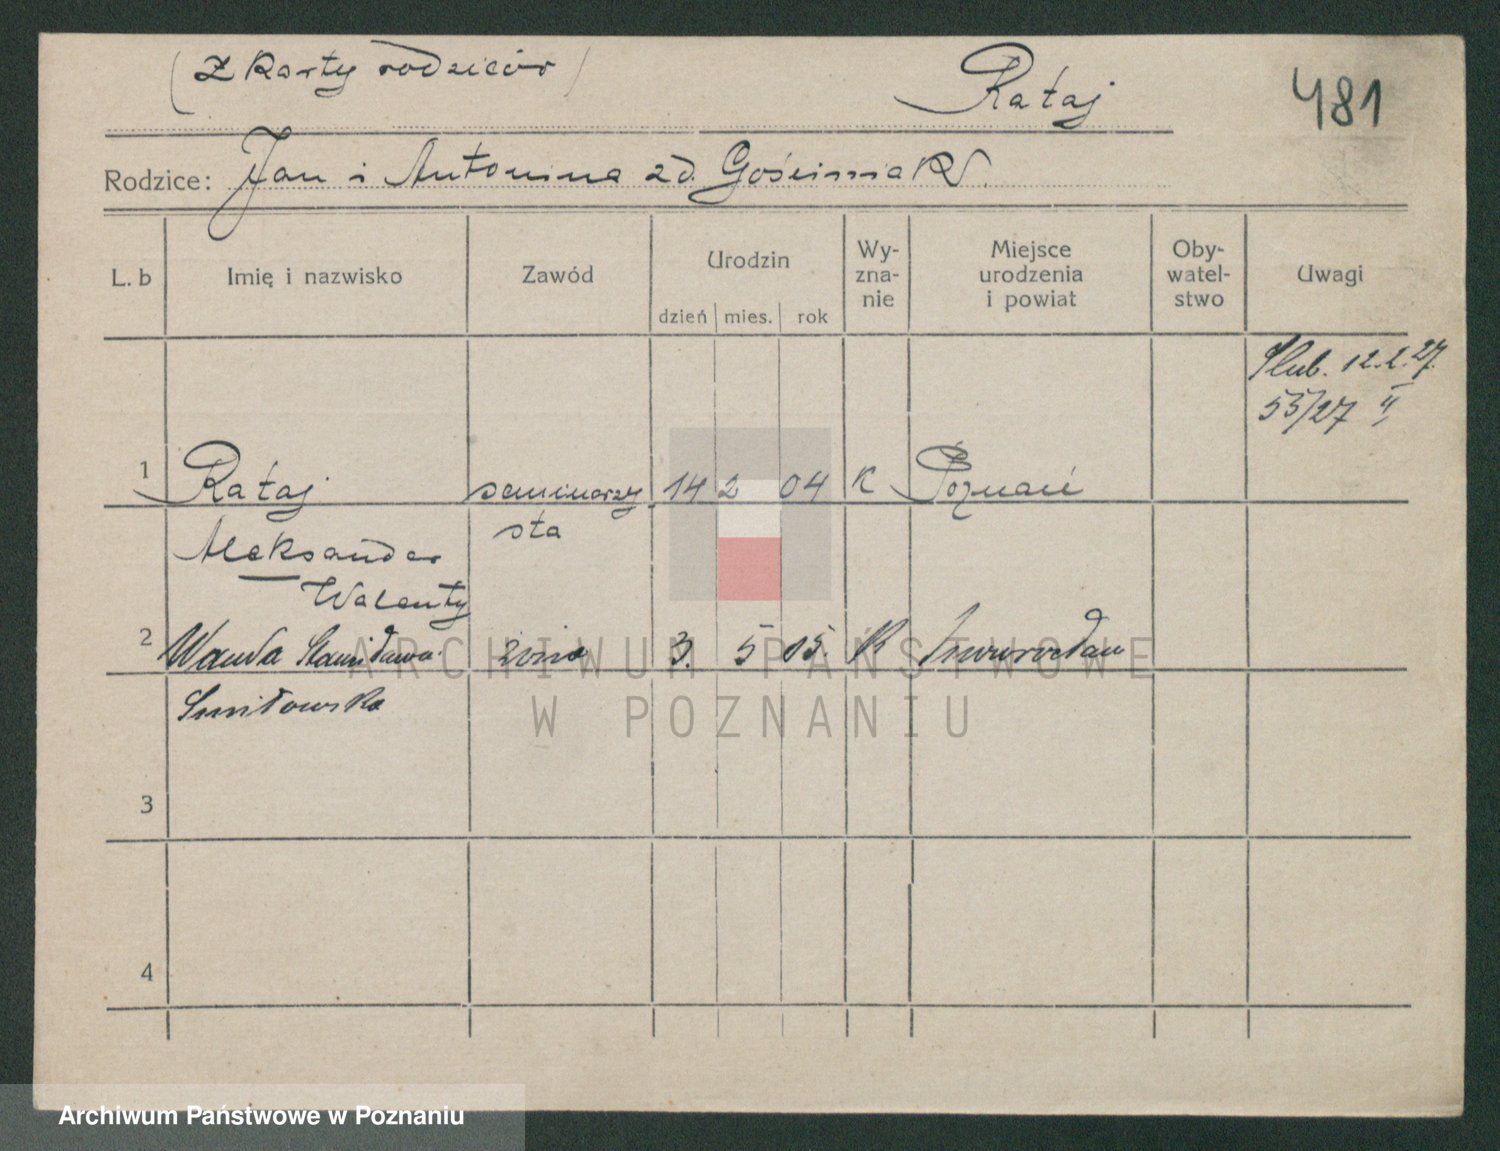 (Z Karty rodziców)
Rataj
481
Rodzice: Jan i Antonina zd. Gościniak
L. b Imię i nazwisko Zawód Urodzin dzień mies. rok Wy-zna-nie Miejsce urodzenia i powiat Oby-watel-stwo Uwagi
Ślub. 12.2.27.
55/27 II
1 Rataj seminarzy 14 2 04 K Poznań
sta
Aleksander
Walenty
2 Wanda Stanisława żona 3. 5 05. K Inowrocław
Smiłowska
3
4
ARCHIWUM PAŃSTWOWE
W POZNANIU
Archiwum Państwowe w Poznaniu